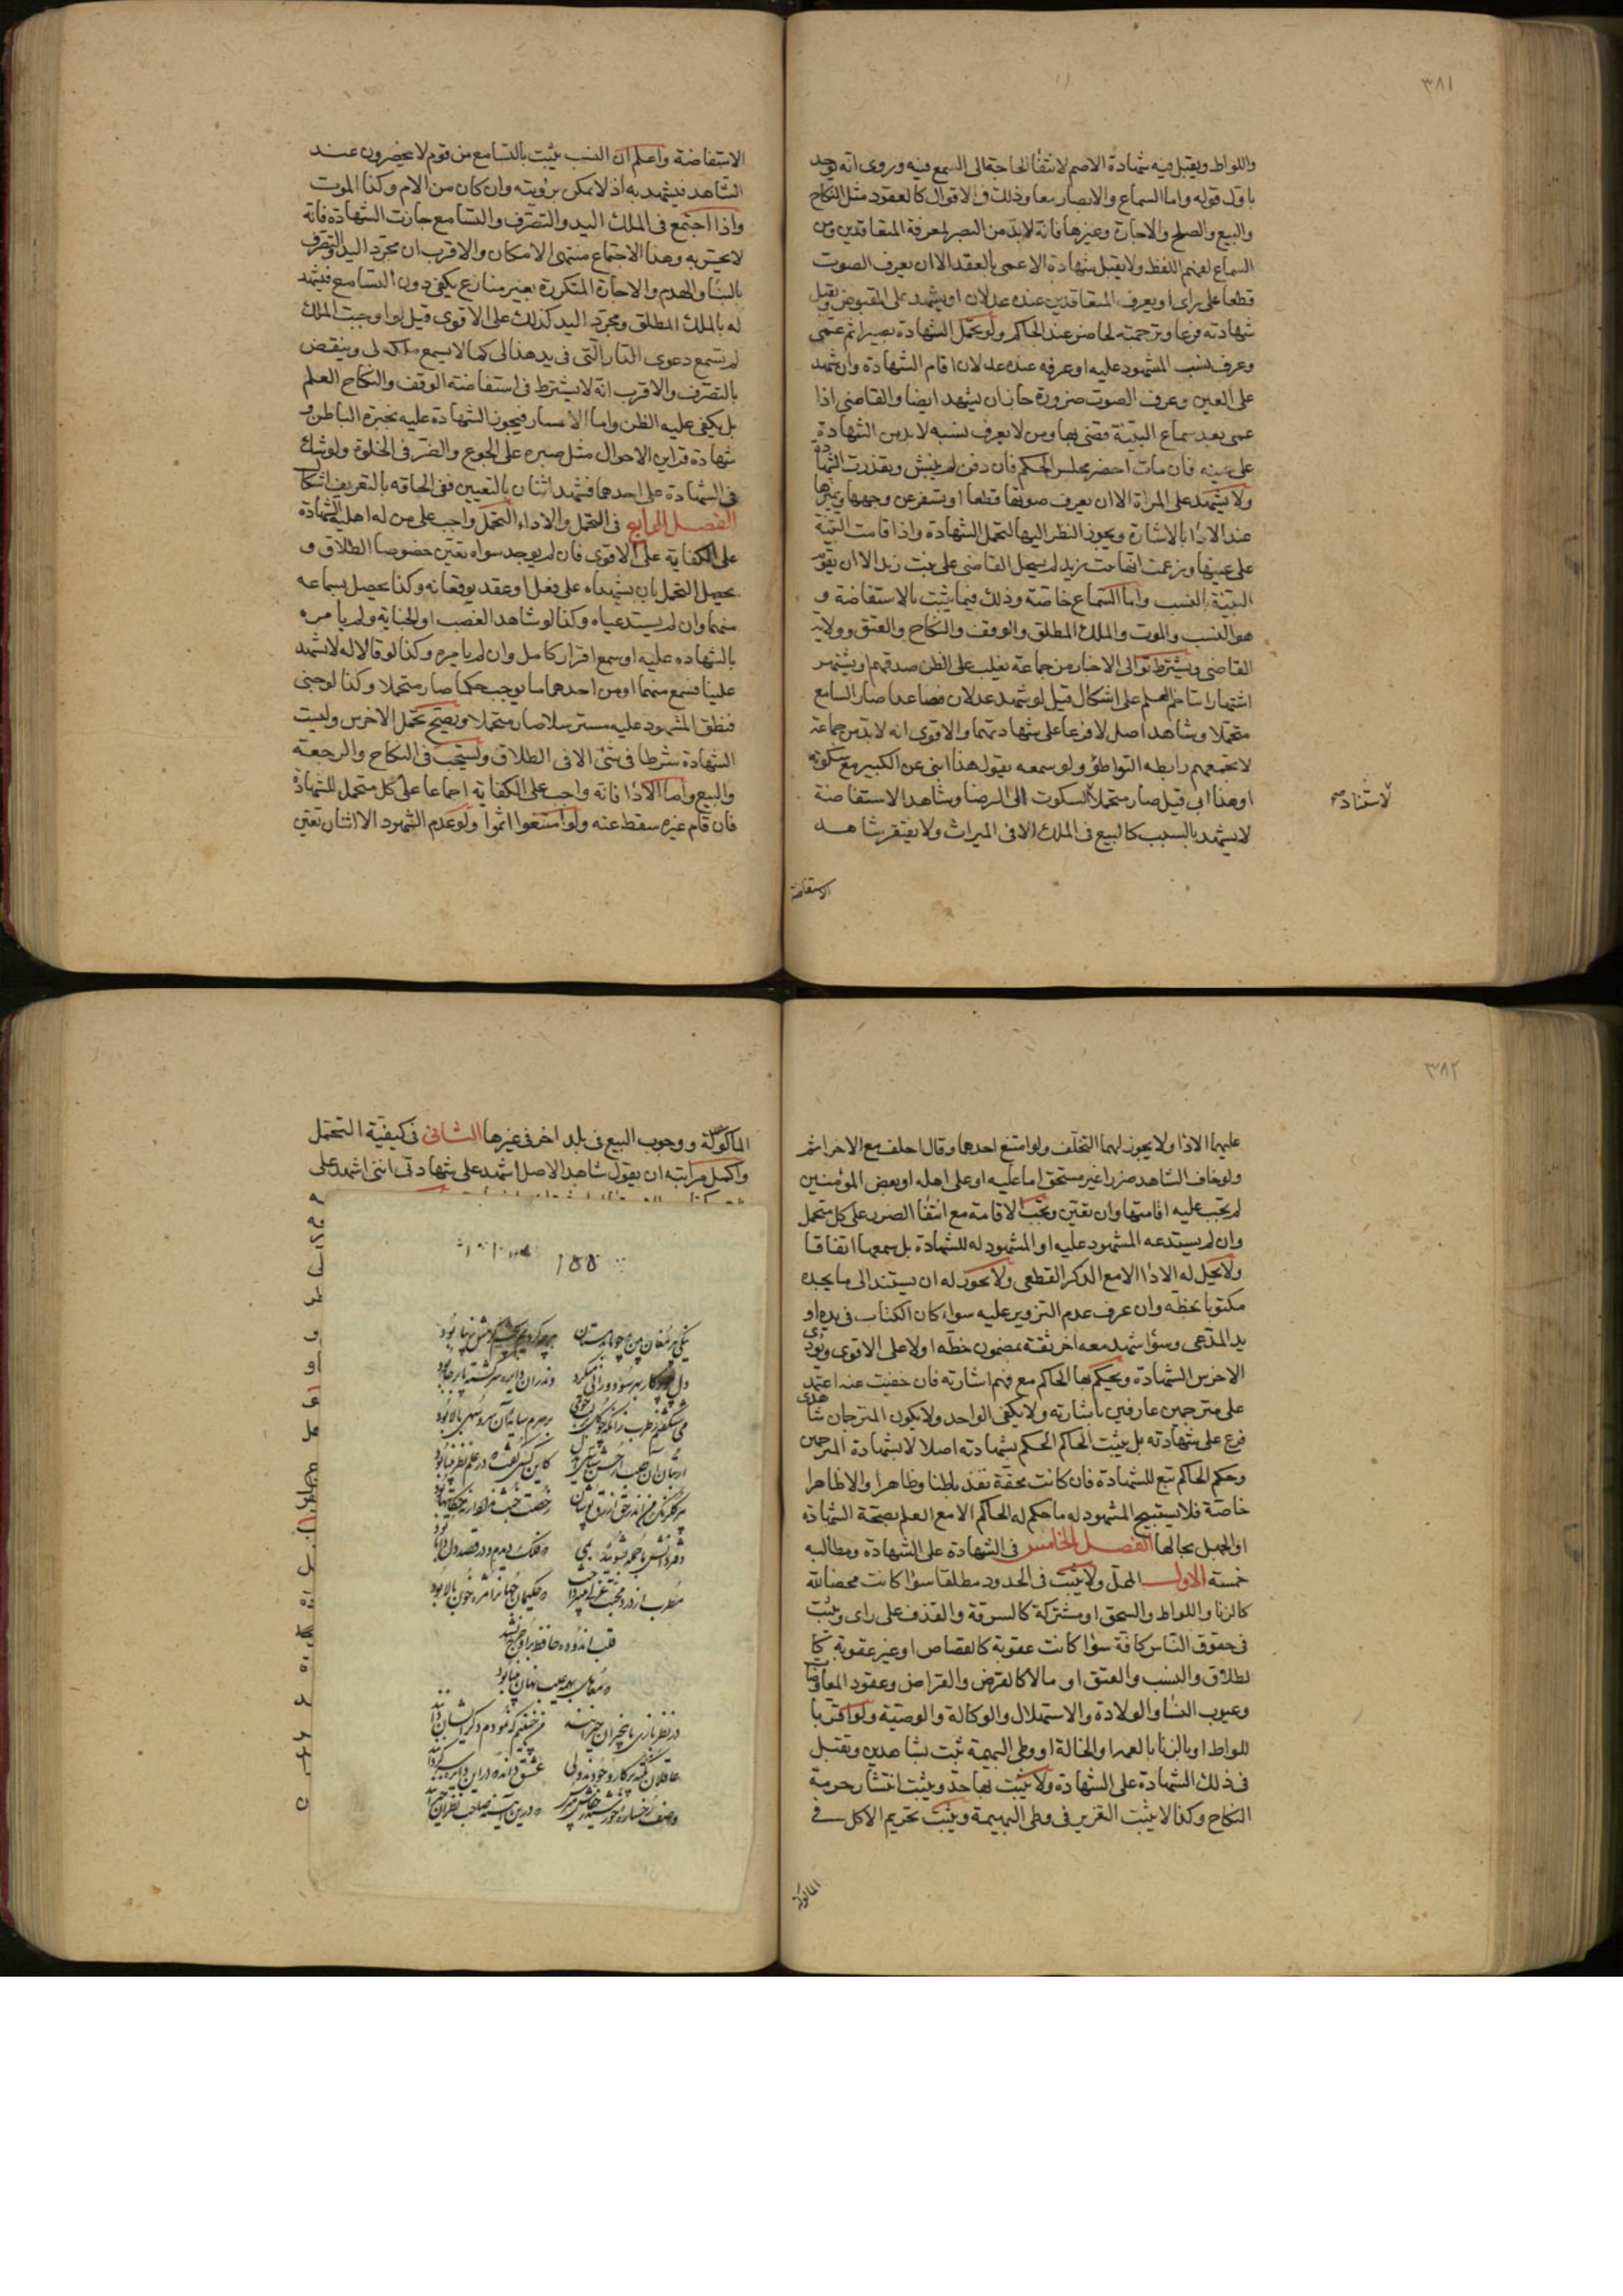 ٣٨١
واللواط ويقبل فيه شهادة الاصم لانتفا الحاجة الى السمع فيه وروى انه يوخذ
باول قوله واما السماع والابصار معا وذلك فى الاقوال كالعقود مثل النكاح
والبيع والصلح والاجارة وغيرها فانه لابد من البصر لمعرفة المتعاقدين ومن
السماع لفهم اللفظ ولا يقبل شهادة الاعمى بالعقد الا ان يعرف الصوت
قطعا على راى او يعرف المتعاقدين عنده عدلان او يشهد على المقبوض ويقبل
شهادته فرعا وترجمته لحاضر عند الحاكم ولو تحمل الشهادة بصيرا ثم عمى
وعرف نسب المشهود عليه او عرفه عنده عدلان اقام الشهادة وان شهد
على العين وعرف الصوت ضرورة جاز ان يشهد ايضا والقاضى اذا
عمى بعد سماع البينة قضى بها ومن لا يعرف نسبه لا بد من الشهادة
على عينه فان مات احضر مجلس الحكم فان دفن لم ينبش وتعذرت الشهادة
ولا يشهد على المراة الا ان يعرف صوتها قطعا او يسفر عن وجهها ويميزها
عند الادا بالاشارة ويجوز النظر اليها لتحمل الشهادة واذا قامت البينة
على عينها وزعمت انها بنت زيد لم يسجل القاضى على بنت زيد الا ان يقوم
البينة بالنسب واما السماع خاصة وذلك فيما يثبت بالاستفاضة و
هو النسب والموت والملك المطلق والوقف والنكاح والعتق وولاية
القاضى ويشترط توالى الاخبار من جماعة يغلب على الظن صدقهم او يشتهر
اشتهارا يتاخم العلم على اشكال قيل لو شهد عدلان فصاعدا صار السامع
متحملا وشاهد اصل لا فرعا على شهادتهما والاقوى انه لا بد من جماعة
لا يجمعهم رابطه التواطؤ ولو سمعه يقول هذا ابنى عن الكبير مع سكوته
او هذا ابى قيل صار متحملا لاستناد السكوت الى الرضا وشاهد الاستفاضة
لا يشهد بالسبب كالبيع فى الملك الا فى الميراث ولا يفتقر شاهد
الاستفاضة
الاستفاضة واعلم ان النسب يثبت بالتسامع من قوم لا يحضرون عند
الشاهد فيشهد به اذ لا يمكن برؤيته وان كان من الام وكذا الموت
واذا اجتمع فى الملك اليد والتصرف والتسامع جازت الشهادة فانه
لا يحسر به وهذا الاجتماع منتهى الامكان والاقرب ان مجرد اليد والتصرف
بالبنا والهدم والاجارة المتكررة بغير منازع يكفى دون التسامع فيشهد
له بالملك المطلق ومجرد اليد كذلك على الاقوى قيل لو اوجبت الملك
لم تسمع دعوى الدار التى فى يد هذا لى كما لا يسمع ملكه لى وينقض
بالتصرف والاقرب انه لا يشترط فى استفاضة الوقف والنكاح العلم
بل يكفى عليه الظن واما الاعسار فيجوز الشهادة عليه بخبرة الباطن و
شهادة قراين الاحوال مثل صبره على الجوع والضر فى الخلوة ولو شك
فى الشهادة على احدهما فشهد اثنان بالتعيين ففى الحاقه بالتعريف اشكال
الفصل الرابع فى التحمل والاداء التحمل واجب على من له اهلية الشهادة
على الكفاية على الاقوى فان لم يوجد سواه تعين خصوصا الطلاق و
يحصل التحمل بان يشهداه على فعل او عقد يوقعانه وكذا يحصل بسماعه
منهما وان لم يستدعياه وكذا لو شاهد الغصب او الجناية ولم يامره
بالشهاده عليه او سمع اقرار كامل وان لم يامره وكذا لو قالا له لا تشهد
علينا فسمع منهما او من احدهما ما يوجب حكما صار متحملا وكذا لو خبى
فنطق المشهود عليه مسترسلا صار متحملا ويصح تحمل الاخرس وليست
الشهادة شرطا فى شئ الا فى الطلاق ويستحب فى النكاح والرجعة
والبيع واما الادا فانه واجب على الكفاية اجماعا على كل متحمل للشهادة
فان قام غيره سقط عنه ولو امتنعوا اثموا ولو عدم الشهود الا اثنان تعين
٣٨٢
عليهما الادا ولا يجوز لهما التخلف ولو امتنع احدهما وقال احلف مع الاخر اثم
ولو خاف الشاهد ضررا غير مستحق اما عليه او على اهله او بعض المؤمنين
لم تجب عليه اقامتها وان تعين وتجب الاقامة مع انتفا الضرر على كل متحمل
وان لم يستدعه المشهود عليه او المشهود له للشهادة بل سمعها اتفاقا
ولا يحل له الادا الا مع الذكر القطعى ولا يجوز له ان يستند الى ما يجده
مكتوبا بخطه وان عرف عدم التزوير عليه سواء كان الكتاب فى يده او
يد المدعى وسوا شهد معه اخر ثقة بمضمون خطه او لا على الاقوى ويؤدى
الاخرس الشهادة ويحكم بها الحاكم مع فهم اشارته فان خفيت عنه اعتمد
على مترجمين عارفين باشارته ولا يكفى الواحد ولا يكون المترجمان شاهدى
فرع على شهادته بل يثبت الحاكم الحكم بشهادته اصلا لا بشهادة المترجمين
وحكم الحاكم تبع للشهادة فان كانت محقة نفذ باطنا وظاهرا والا ظاهرا
خاصة فلا يستبيح المشهود له ما حكم له الحاكم الا مع العلم بصحة الشهادة
او الجهل بحالها الفصل الخامس فى الشهادة على الشهادة ومطالبه
خمسة الاول المحل ولا يثبت فى الحدود مطلقا سوا كانت محضا لله
كالزنا واللواط والسحق او مشتركة كالسرقة والقذف على راى ويثبت
فى حقوق الناس كافة سوا كانت عقوبة كالقصاص او غير عقوبة كا
لطلاق والنسب والعتق او مالا كالقرض والقراض وعقود المعاوضا
وعيوب النسا والولادة والاستهلال والوكالة والوصية ولو اقر با
للواط او بالزنا بالعمة او الخالة او وطى البهيمة ثبت بشاهدين وتقبل
فى ذلك الشهادة على الشهادة ولا يثبت بها حد ويثبت انتشار حرمة
النكاح وكذا لا يثبت التعزير فى وطى البهيمة ويثبت تحريم الاكل فى
الماكولة
الماكولة ووجوب البيع فى بلد اخر فى غيرها الثانى فى كيفية التحمل
واكمل مراتبه ان يقول شاهد الاصل اشهد على شهادتى اننى اشهد على
١٥٥
نیکی پیر مغان بین که چو ما بدمستان
هرچه کردیم بچشم کرمش زیبا بود
دل چو پرکار بهر سو دورانی میکرد
وندران دایره سرگشته پابرجا بود
می شکفتم ز طرب زانکه چو گل بر لب جوی
بر سرم سایه آن سرو سهی بالا بود
پیر گلرنگ من اندر حق ازرق پوشان
رخصت خبث نداد ارنه حکایتها بود
دفتر دانش ما جمله بشوئید بمی
که فلک دیدم و در قصد دل دانا بود
مطرب از درد محبت غزلی میپرداخت
که حکیمان جهانرا مژه خون پالا بود
قلب اندوده حافظ بر او خرج نشد
که معامل بهمه عیب نهان بینا بود
در نظر بازی ما بیخبران حیرانند
من چنینم که نمودم دگر ایشان دانند
عاقلان نقطه پرکار وجودند ولی
عشق داند که درین دایره سرگردانند
وصف رخساره خورشید ز خفاش مپرس
که درین آینه صاحب نظران حیرانند